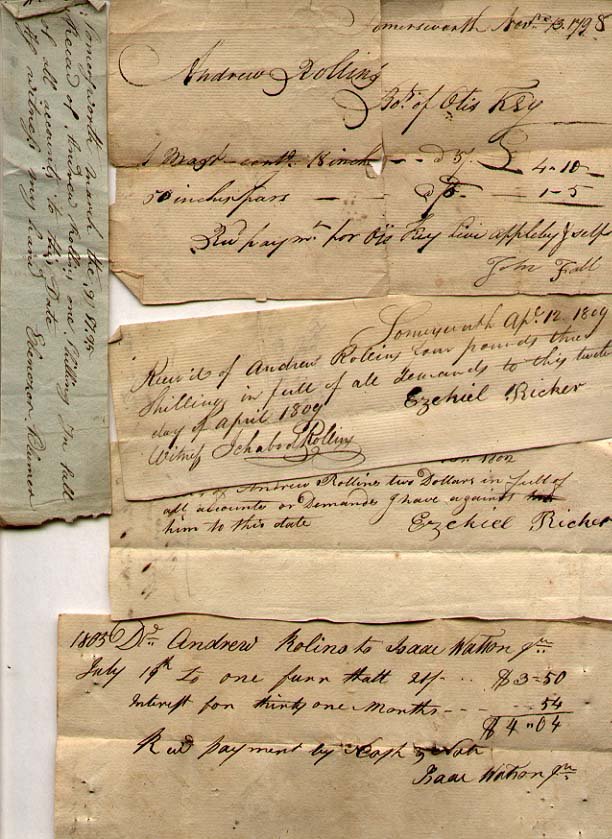 Somersworth March the 9 1795
Recd of Andrew Rollins one Shilling In full
of all accounts to this Date
as witness my hand Ebenezer
Somersworth Novr 13 1798
Andrew Rollins
Bot of Otis Key
18 inch 4-10
50 inch spars 1-5
Recd paymt for Otis Key Live appleby & self
John Fall
Somersworth Apl 12. 1809
Receivd of Andrew Rollins four pounds three
Shillings in full of all demands to this twelfth
day of April 1809 Ezekiel Ricker
Witness Ichabod Rollins
1802
of Andrew Rollins two Dollars in full of
all accounts or Demands I have against
him to this date Ezekiel Ricker
1805 Dr Andrew Rolins to Isaac Watson Jun
July 19th To one furr hatt 21/- $3=50
Interest for thirty one Months 54
$4"04
Recd payment by
Isaac Watson Jun